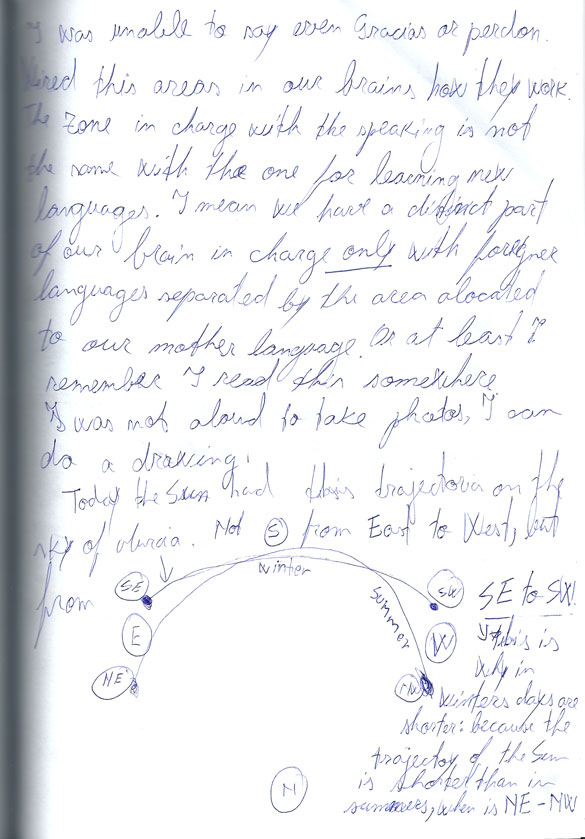 I was unable to say even Gracias or perdon.
this areas in our brains how they work.
The zone in charge with the speaking is not
the same with the one for learning new
languages. I mean we have a distinct part
of our brain in charge only with foreigner
languages separated by the area alocated
to our mother language. Or at least I
remember I read this somewhere
I was not aloud to take photos, I can
do a drawing.
Today the Sun had this on the
sky of Murcia. Not (S) from East to West, but
from
SE
winter
summer
SW
E
W
NE
NW
N
SE to SW!
this is
why in
winters days are
shorter: because the
trajectory of the Sun
is shorter than in
summers, when is NE-NW